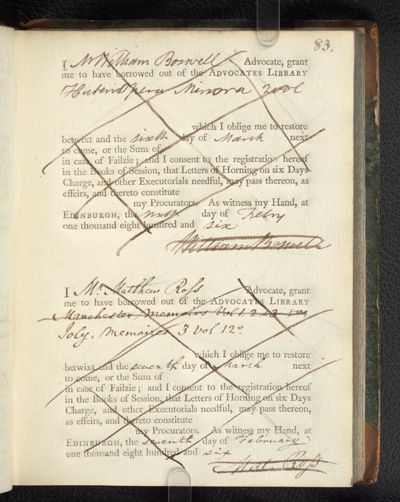 83.
I Mr William Boswell Advocate, grant
me to have borrowed out of the ADVOCATES LIBRARY
Opera Minora
which I oblige me to restore
betwixt and the sixth day of March next
to come, or the Sum of
in case of Failzie; and I consent to the registration hereof
in the Books of Session, that Letters of Horning on six Days
Charge, and other Executorials needful, may pass thereon, as
effeirs, and thereto constitute
my Procurators. As witness my Hand, at
EDINBURGH, the day of Febry
one thousand eight hundred and six
William Boswell
I Mr. Matthew Ross Advocate, grant
me to have borrowed out of the ADVOCATES LIBRARY
Manchester Memoirs Vol 1 2 & 3
Joly. Memoires 3 Vol 12o
which I oblige me to restore
betwixt and the seventh day of March next
to come, or the Sum of
in case of Failzie; and I consent to the registration hereof
in the Books of Session, that Letters of Horning on six Days
Charge, and other Executorials needful, may pass thereon,
as effeirs, and thereto constitute
my Procurators. As witness my Hand, at
EDINBURGH, the seventh day of February
one thousand eight hundred and six
Mat. Ross